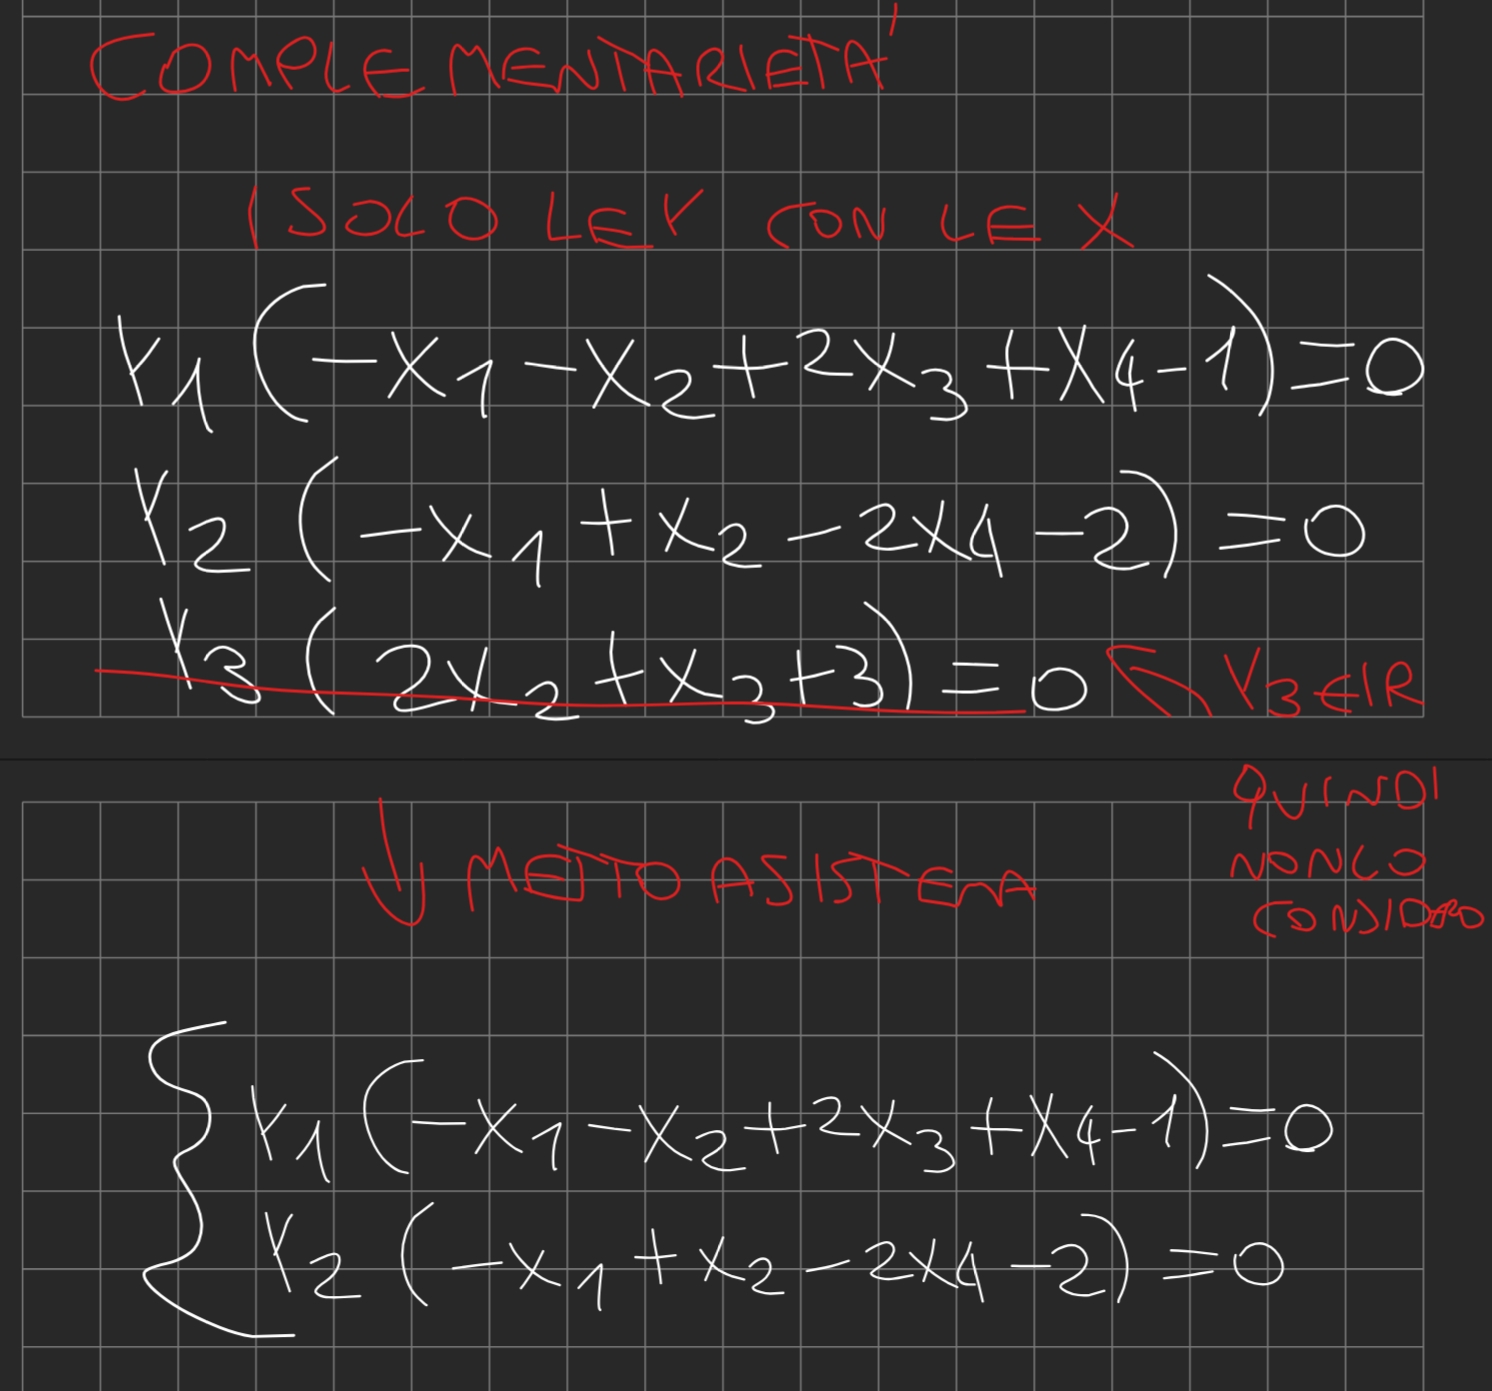 COMPLEMENTARIETA'
ISOLO LE Y CON LE X
Y1 (-X1 - X2 + 2X3 + X4 - 1) = 0
Y2 (-X1 + X2 - 2X4 - 2) = 0
Y3 (2X2 + X3 + 3) = 0 Y3 ∈ IR
QUINDI
NON LO
CONSIDERO
↓ METTO A SISTEMA
Y1 (-X1 - X2 + 2X3 + X4 - 1) = 0
Y2 (-X1 + X2 - 2X4 - 2) = 0